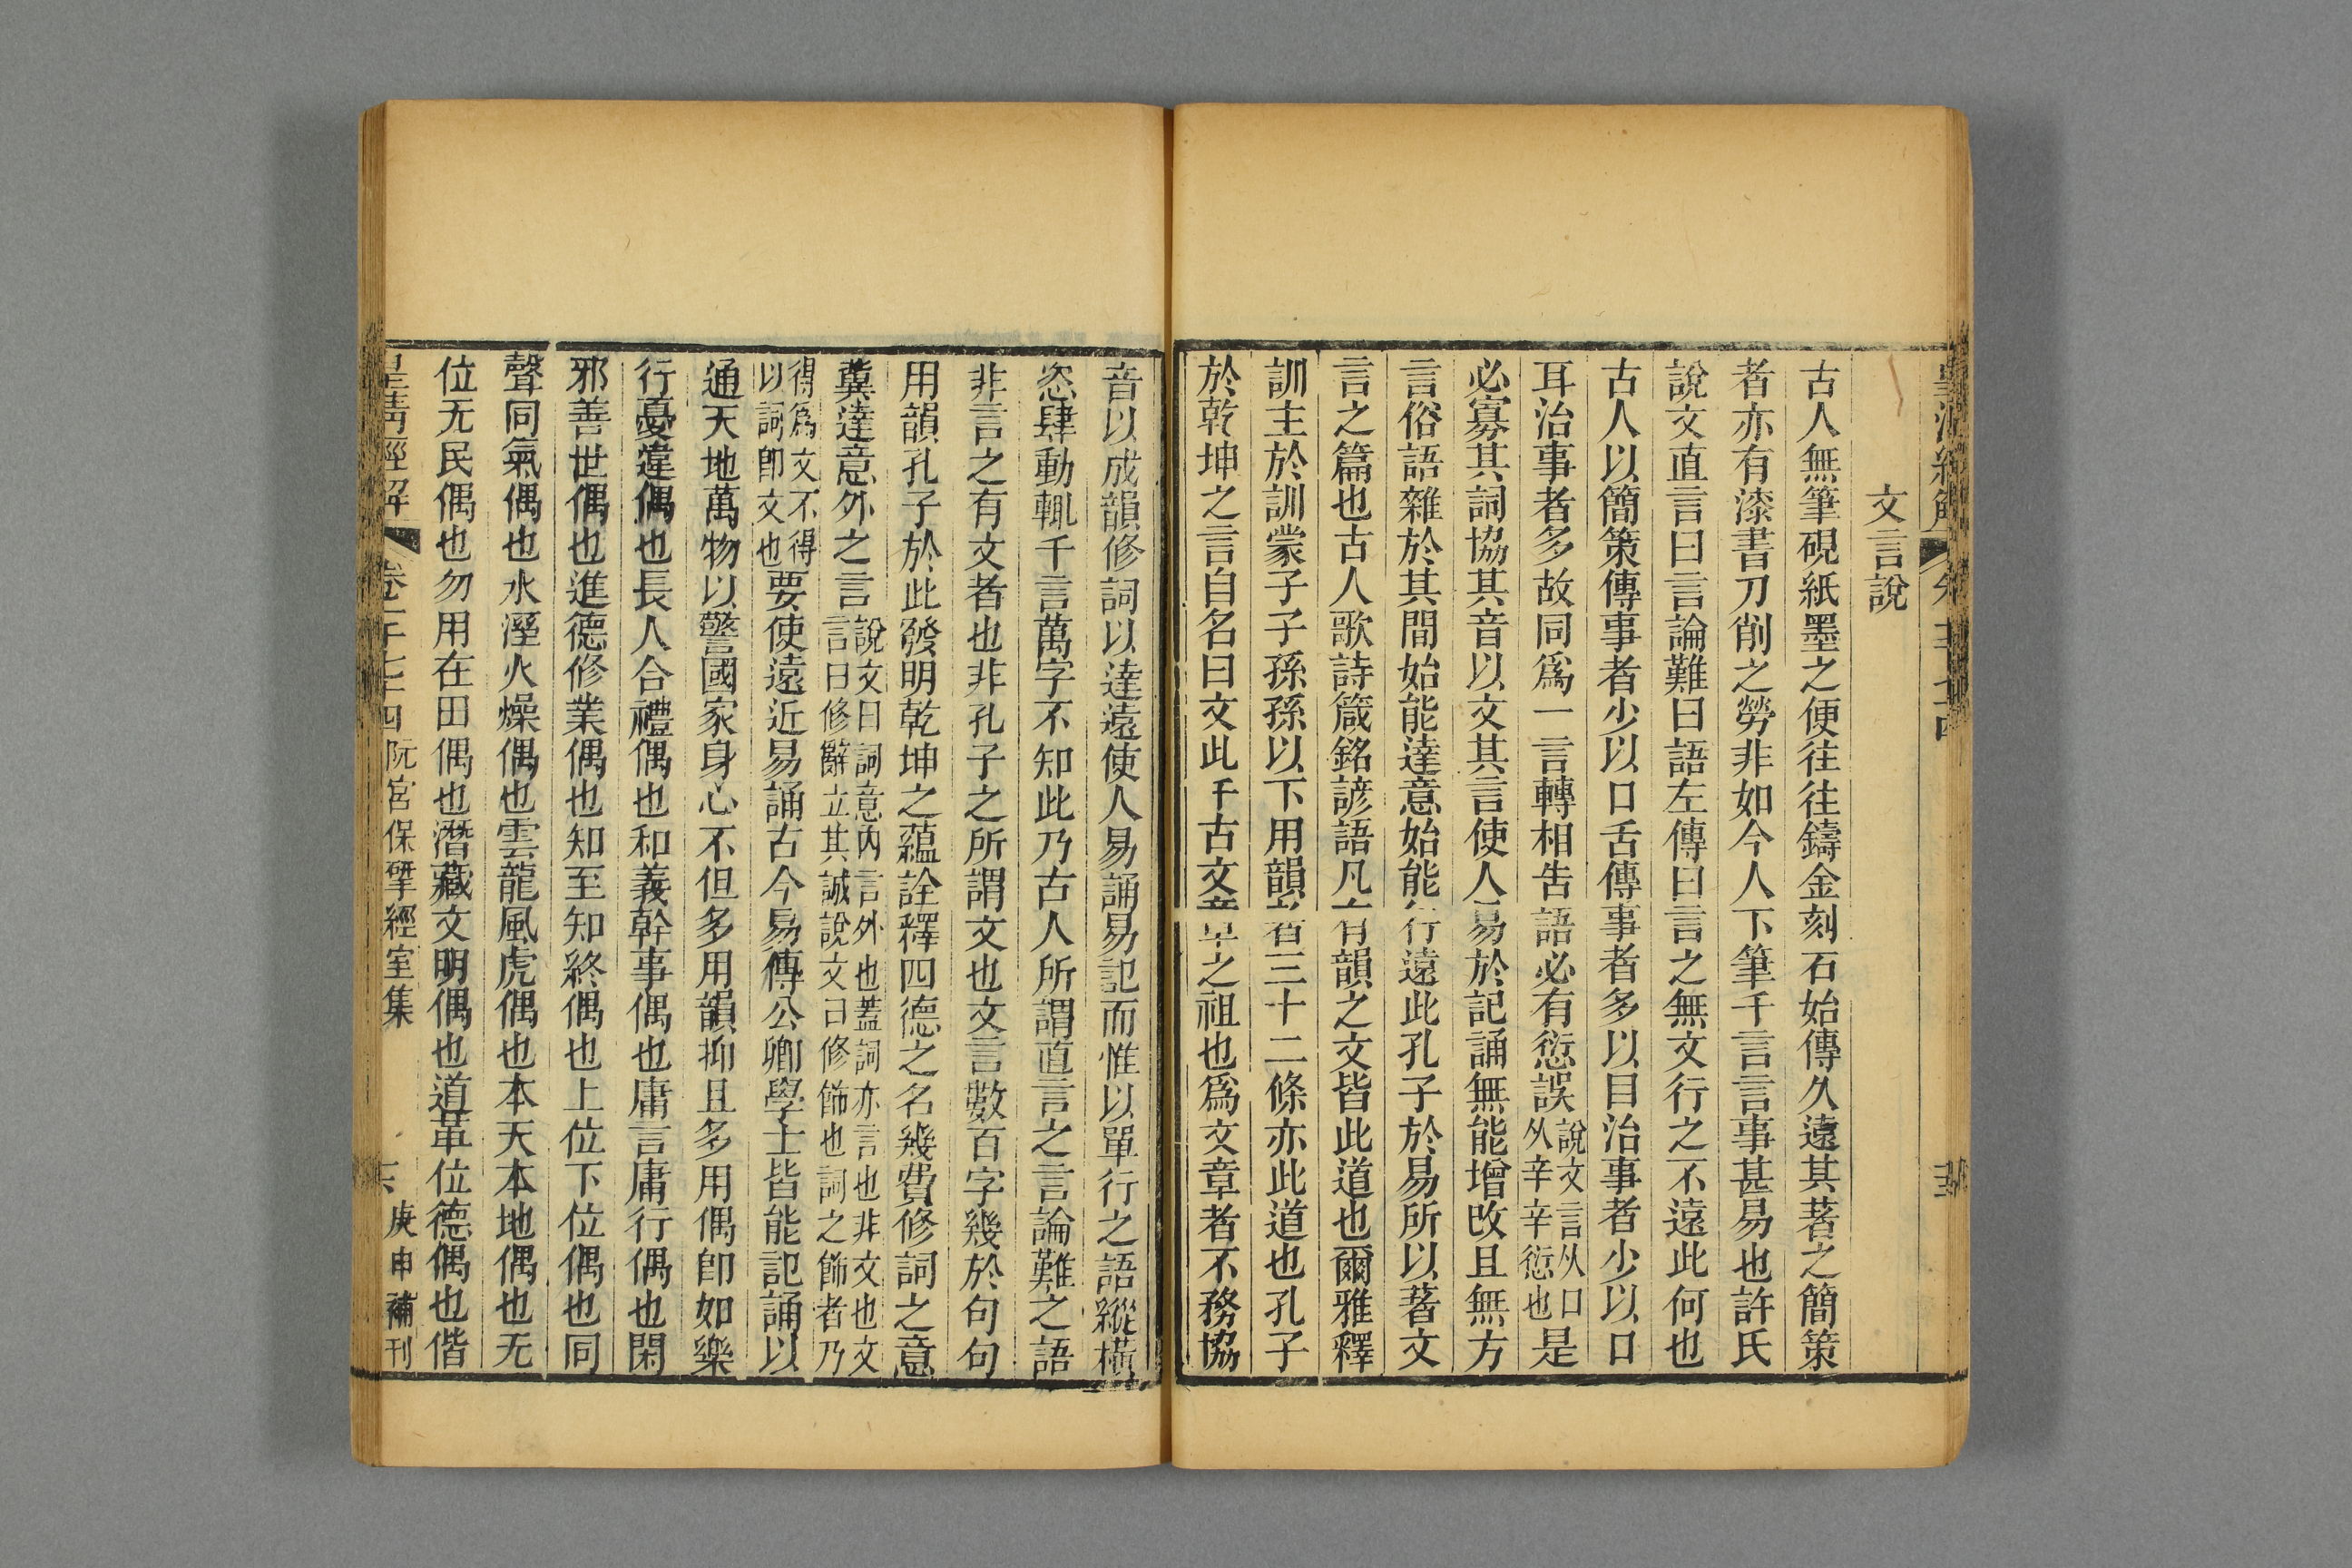 文言說
古人無筆硯紙墨之便往往鑄金刻石始傳久遠其著之簡策
者亦有漆書刀削之勞非如今人下筆千言言事甚易也許氏
說文直言曰言論難曰語左傳曰言之無文行之不遠此何也
古人以簡策傳事者少以口舌傳事者多以目治事者少以口
耳治事者多故同爲一言轉相告語必有愆誤說文言从口从辛辛愆也是
必寡其詞協其音以文其言使人易於記誦無能增改且無方
言俗語雜於其間始能達意始能行遠此孔子於易所以著文
言之篇也古人歌詩箴銘諺語凡有韻之文皆此道也爾雅釋
訓主於訓蒙子子孫孫以下用韻者三十二條亦此道也孔子
於乾坤之言自名曰文此千古文章之祖也爲文章者不務協
音以成韻修詞以達遠使人易誦易記而惟以單行之語縱橫
恣肆動輒千言萬字不知此乃古人所謂直言之言論難之語
非言之有文者也非孔子之所謂文也文言數百字幾於句句
用韻孔子於此發明乾坤之蘊詮釋四德之名幾費修詞之意
冀達意外之言說文曰詞意內言外也蓋詞亦言也非文也文言曰修辭立其誠說文曰修飾也詞之飾者乃
得爲文不得以詞卽文也要使遠近易誦古今易傳公卿學士皆能記誦以
通天地萬物以警國家身心不但多用韻抑且多用偶卽如樂
行憂違偶也長人合禮偶也和義幹事偶也庸言庸行偶也閑
邪善世偶也進德修業偶也知至知終偶也上位下位偶也同
聲同氣偶也水溼火燥偶也雲龍風虎偶也本天本地偶也无
位无民偶也勿用在田偶也潛藏文明偶也道革位德偶也偕
皇清經解 卷一千七十四 阮宮保揅經室集 庚申補刊